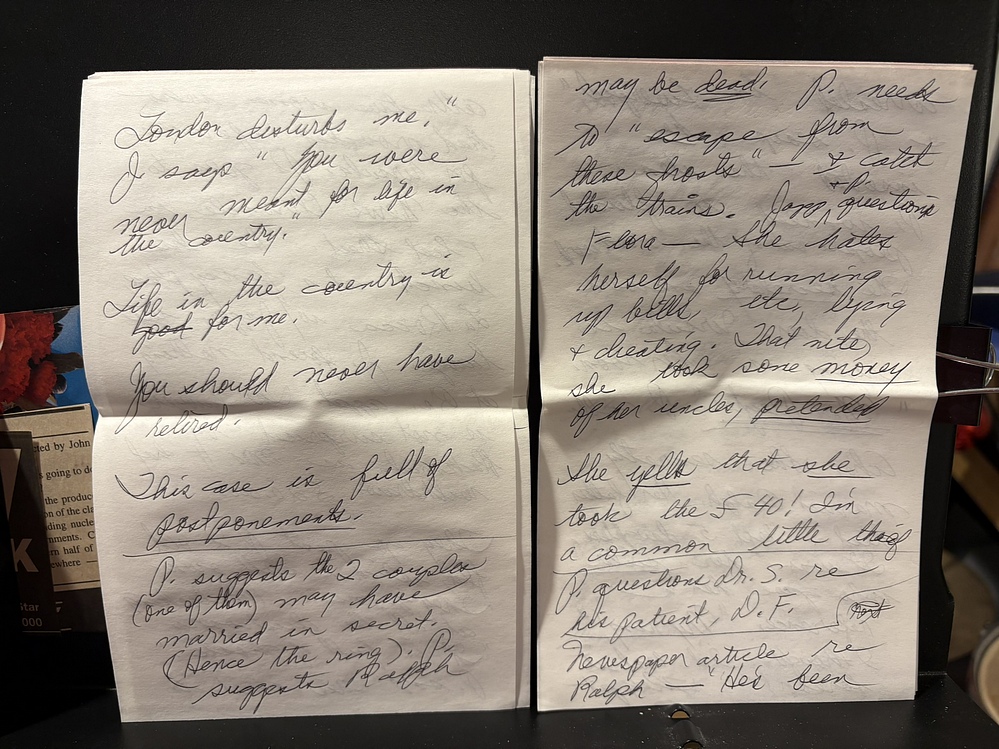 London disturbs me."
J says "You were
never meant for life in
the country."
Life in the country is
good for me.
You should never have
retired.
This case is full of
postponements.
P. suggests the 2 couples
(one of them) may have
married in secret.
(Hence the ring). P.
suggests Ralph
may be dead. P. needs
to "escape from
these ghosts" — & catch
the trains. Japp & P. questions
Flora — She hates
herself for running
up bills, etc, lying
& cheating. That nite,
she took some money
of her uncles, pretended "
She yells that she
took the £40! I'm
a common little thief
P. questions Dr. S. re
his patient, D.F.
Newspaper article re
Ralph — "He's been
cted by John
s going to de
the produc
on of the cla
ding nucle
nments. C
ern half of
ewhere
K
Star
000